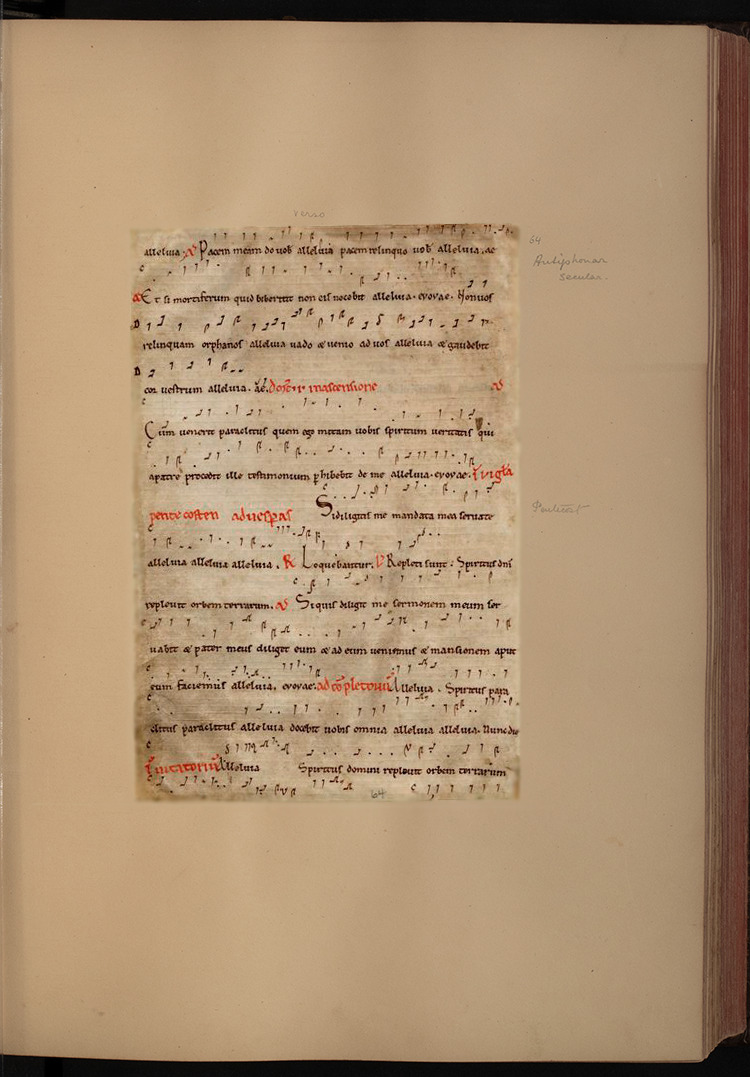 verso
alleluia. A Pacem meam do uob alleluia pacem relinquo uob alleluia. ae
64
Antiphonar
secular.
A Et si mortiferum quid biberint non eis nocebit alleluia. evovae. Non uos
relinquam orphanos alleluia uado & uenio ad uos alleluia & gaudebit
cor uestrum alleluia. ae.
A
Cum uenerit paraclitus quem ego mittam uobis spiritum ueritatis qui
a patre procedit ille testimonium phibebit de me alleluia. evovae. I uigla
pentecosten ad uesp̄as Si diligitis me mandata mea seruate
Pentecost
alleluia alleluia alleluia. R Loquebantur. V Repleti sunt. Spiritus dni
repleuit orbem terrarum. A Si quis diligit me sermonem meum ser
uabit & pater meus diliget eum & ad eum ueniemus & mansionem aput
eum faciemus alleluia. evovae. ad cōpletoriū Alleluia. Spiritus para
clitus paraclitus alleluia docebit uobis omnia alleluia alleluia. Nunc di
Inuitatoriū Alleluia Spiritus domini repleuit orbem terrarum
64